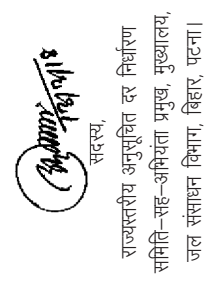 सदस्य,
राज्यस्तरीय अनुसूचित दर निर्धारण
समिति–सह–अभियंता प्रमुख, मुख्यालय,
जल संसाधन विभाग, बिहार, पटना।